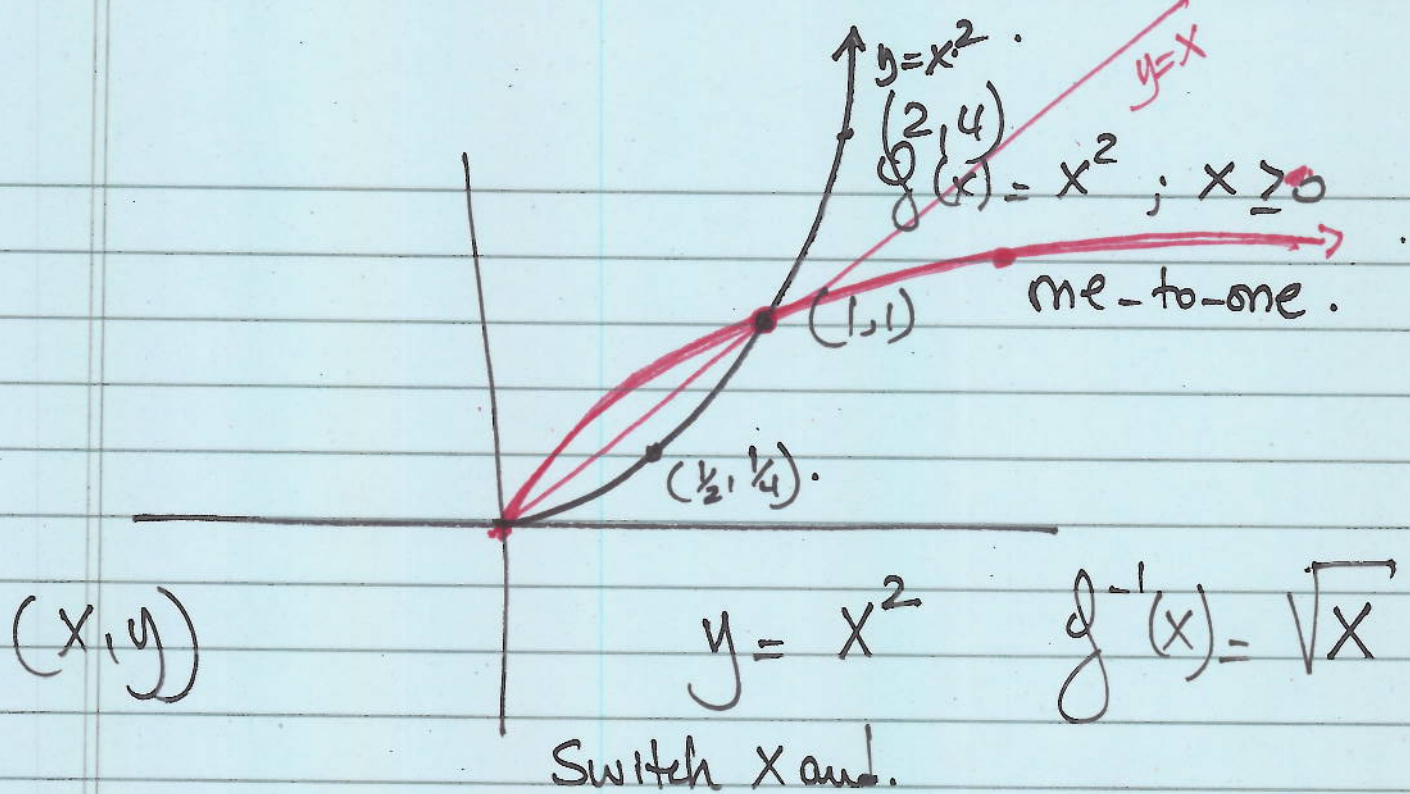 y=x².
y=x
(2,4)
f(x) = x² ; x ≥ 0
one-to-one.
(1,1)
(½, ¼).
(x,y)
y = x² f⁻¹(x) = √x
Switch x and.